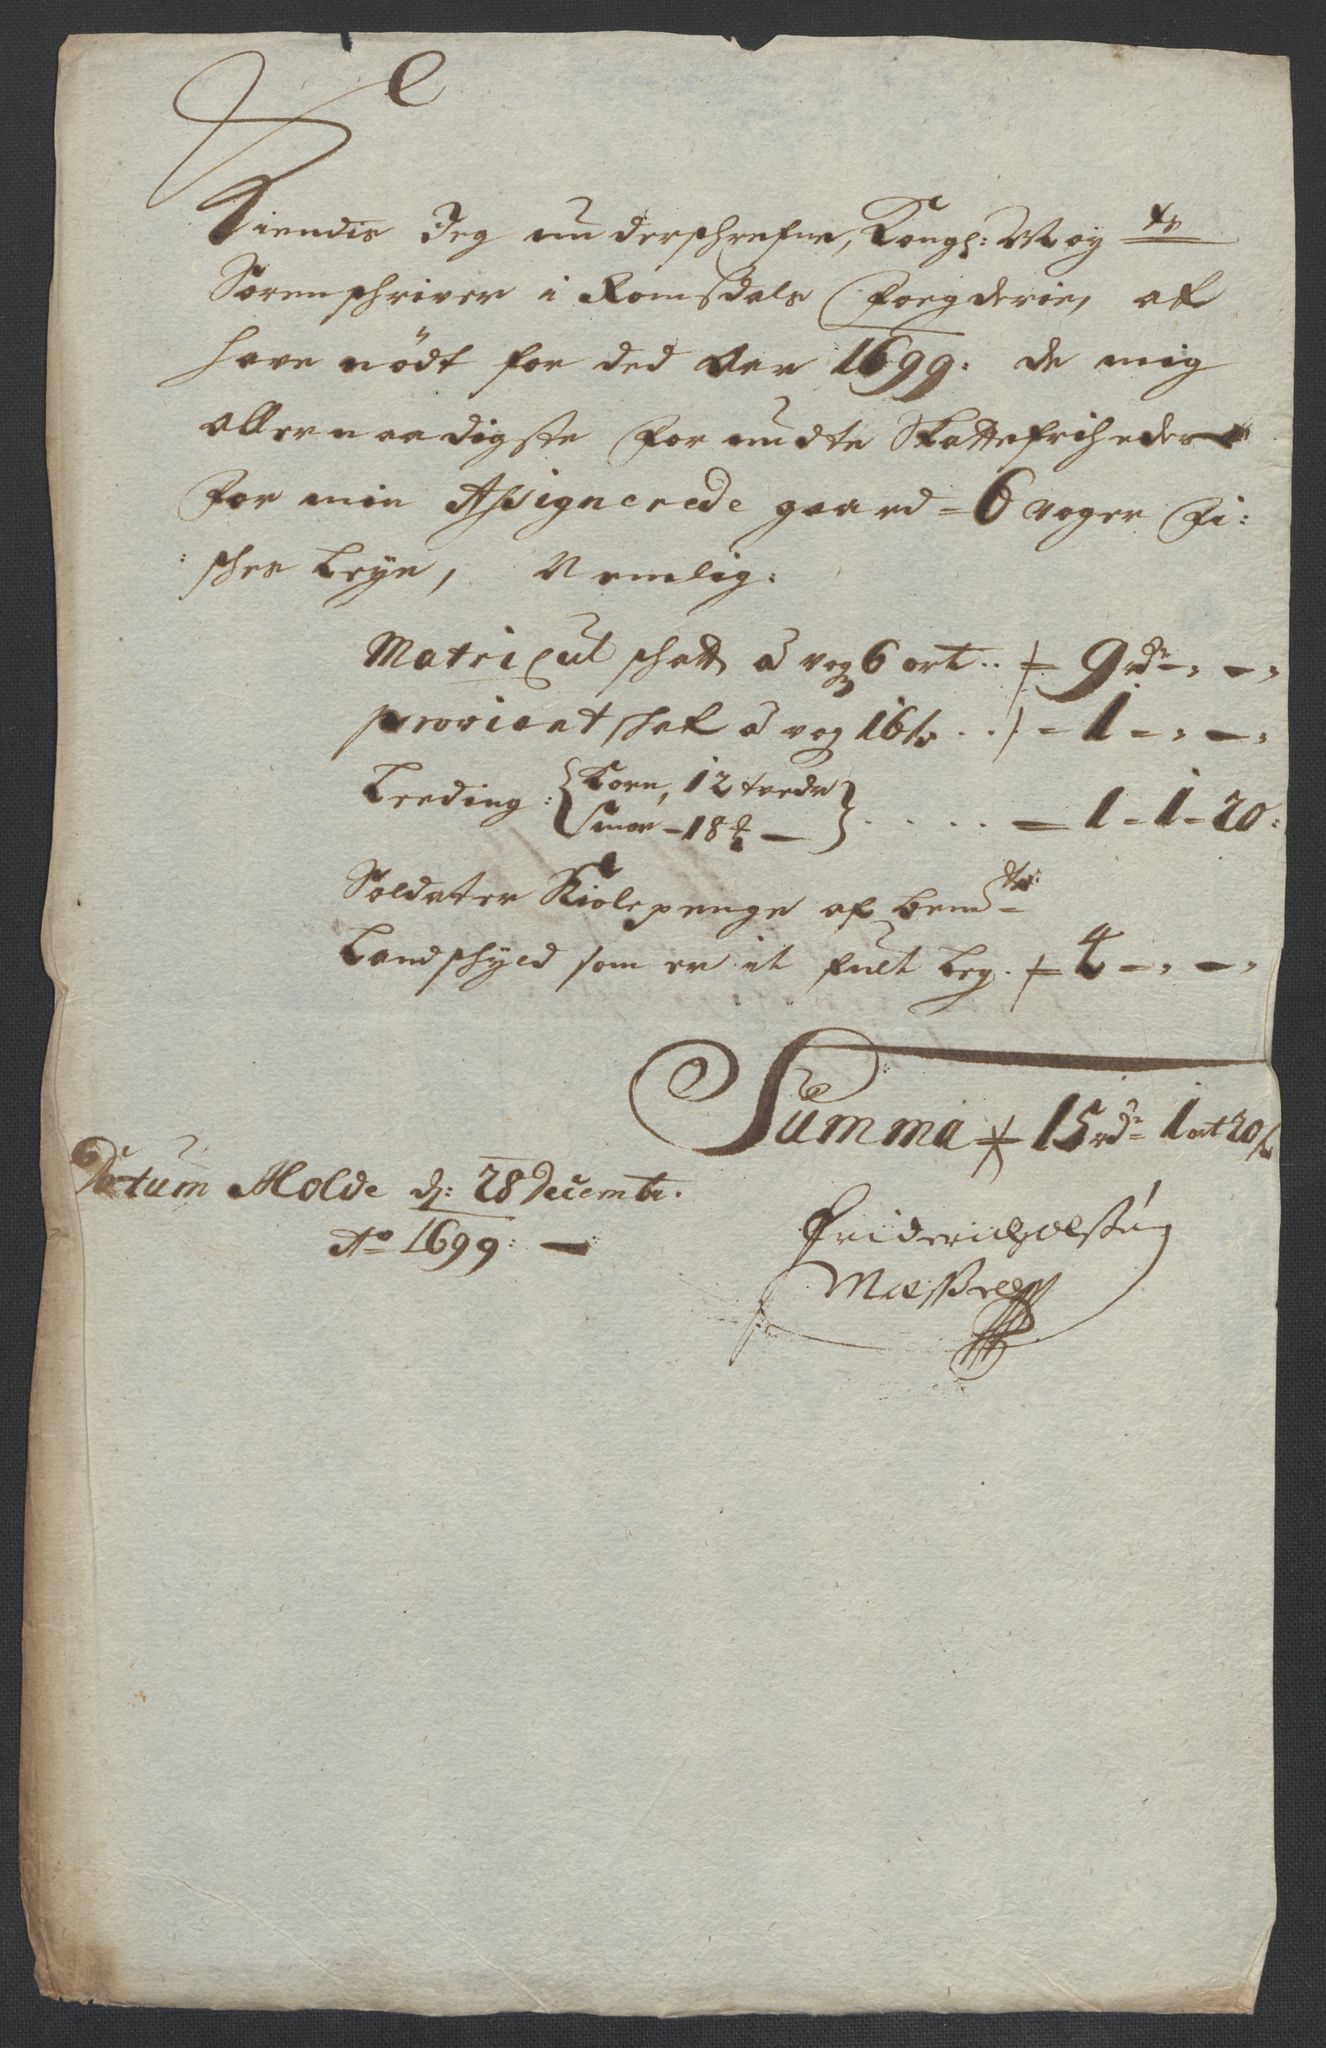 Kiendis Jeg underschrefne, Kongl: May ts
Sorenschriver i Romsdals Foegderie, at
have nödt for ded Aar 1699. de mig
allernaadigste forundte Skattefriheder
for min Assignerede gaard = 6 voger Fi:
:sches Leye, Nemlig:
Matricul schatt à vog 6 ort .. 9 rdr - , - ,
proviant skat à vog 16 s. . . - 1 - , - ,
Leeding: { Korn, 12 tredr
Smør - 18 ₰ - } . . . . . - 1 - 1 - 20:
Soldater Kiolepenge af bem te:
Landschyld som er it fult leg . 4 - , - ,
Summa 15 rdr 1 ort 20 s
Datum Molde d: 28 Decembr.
Ao 1699: -
Friderich